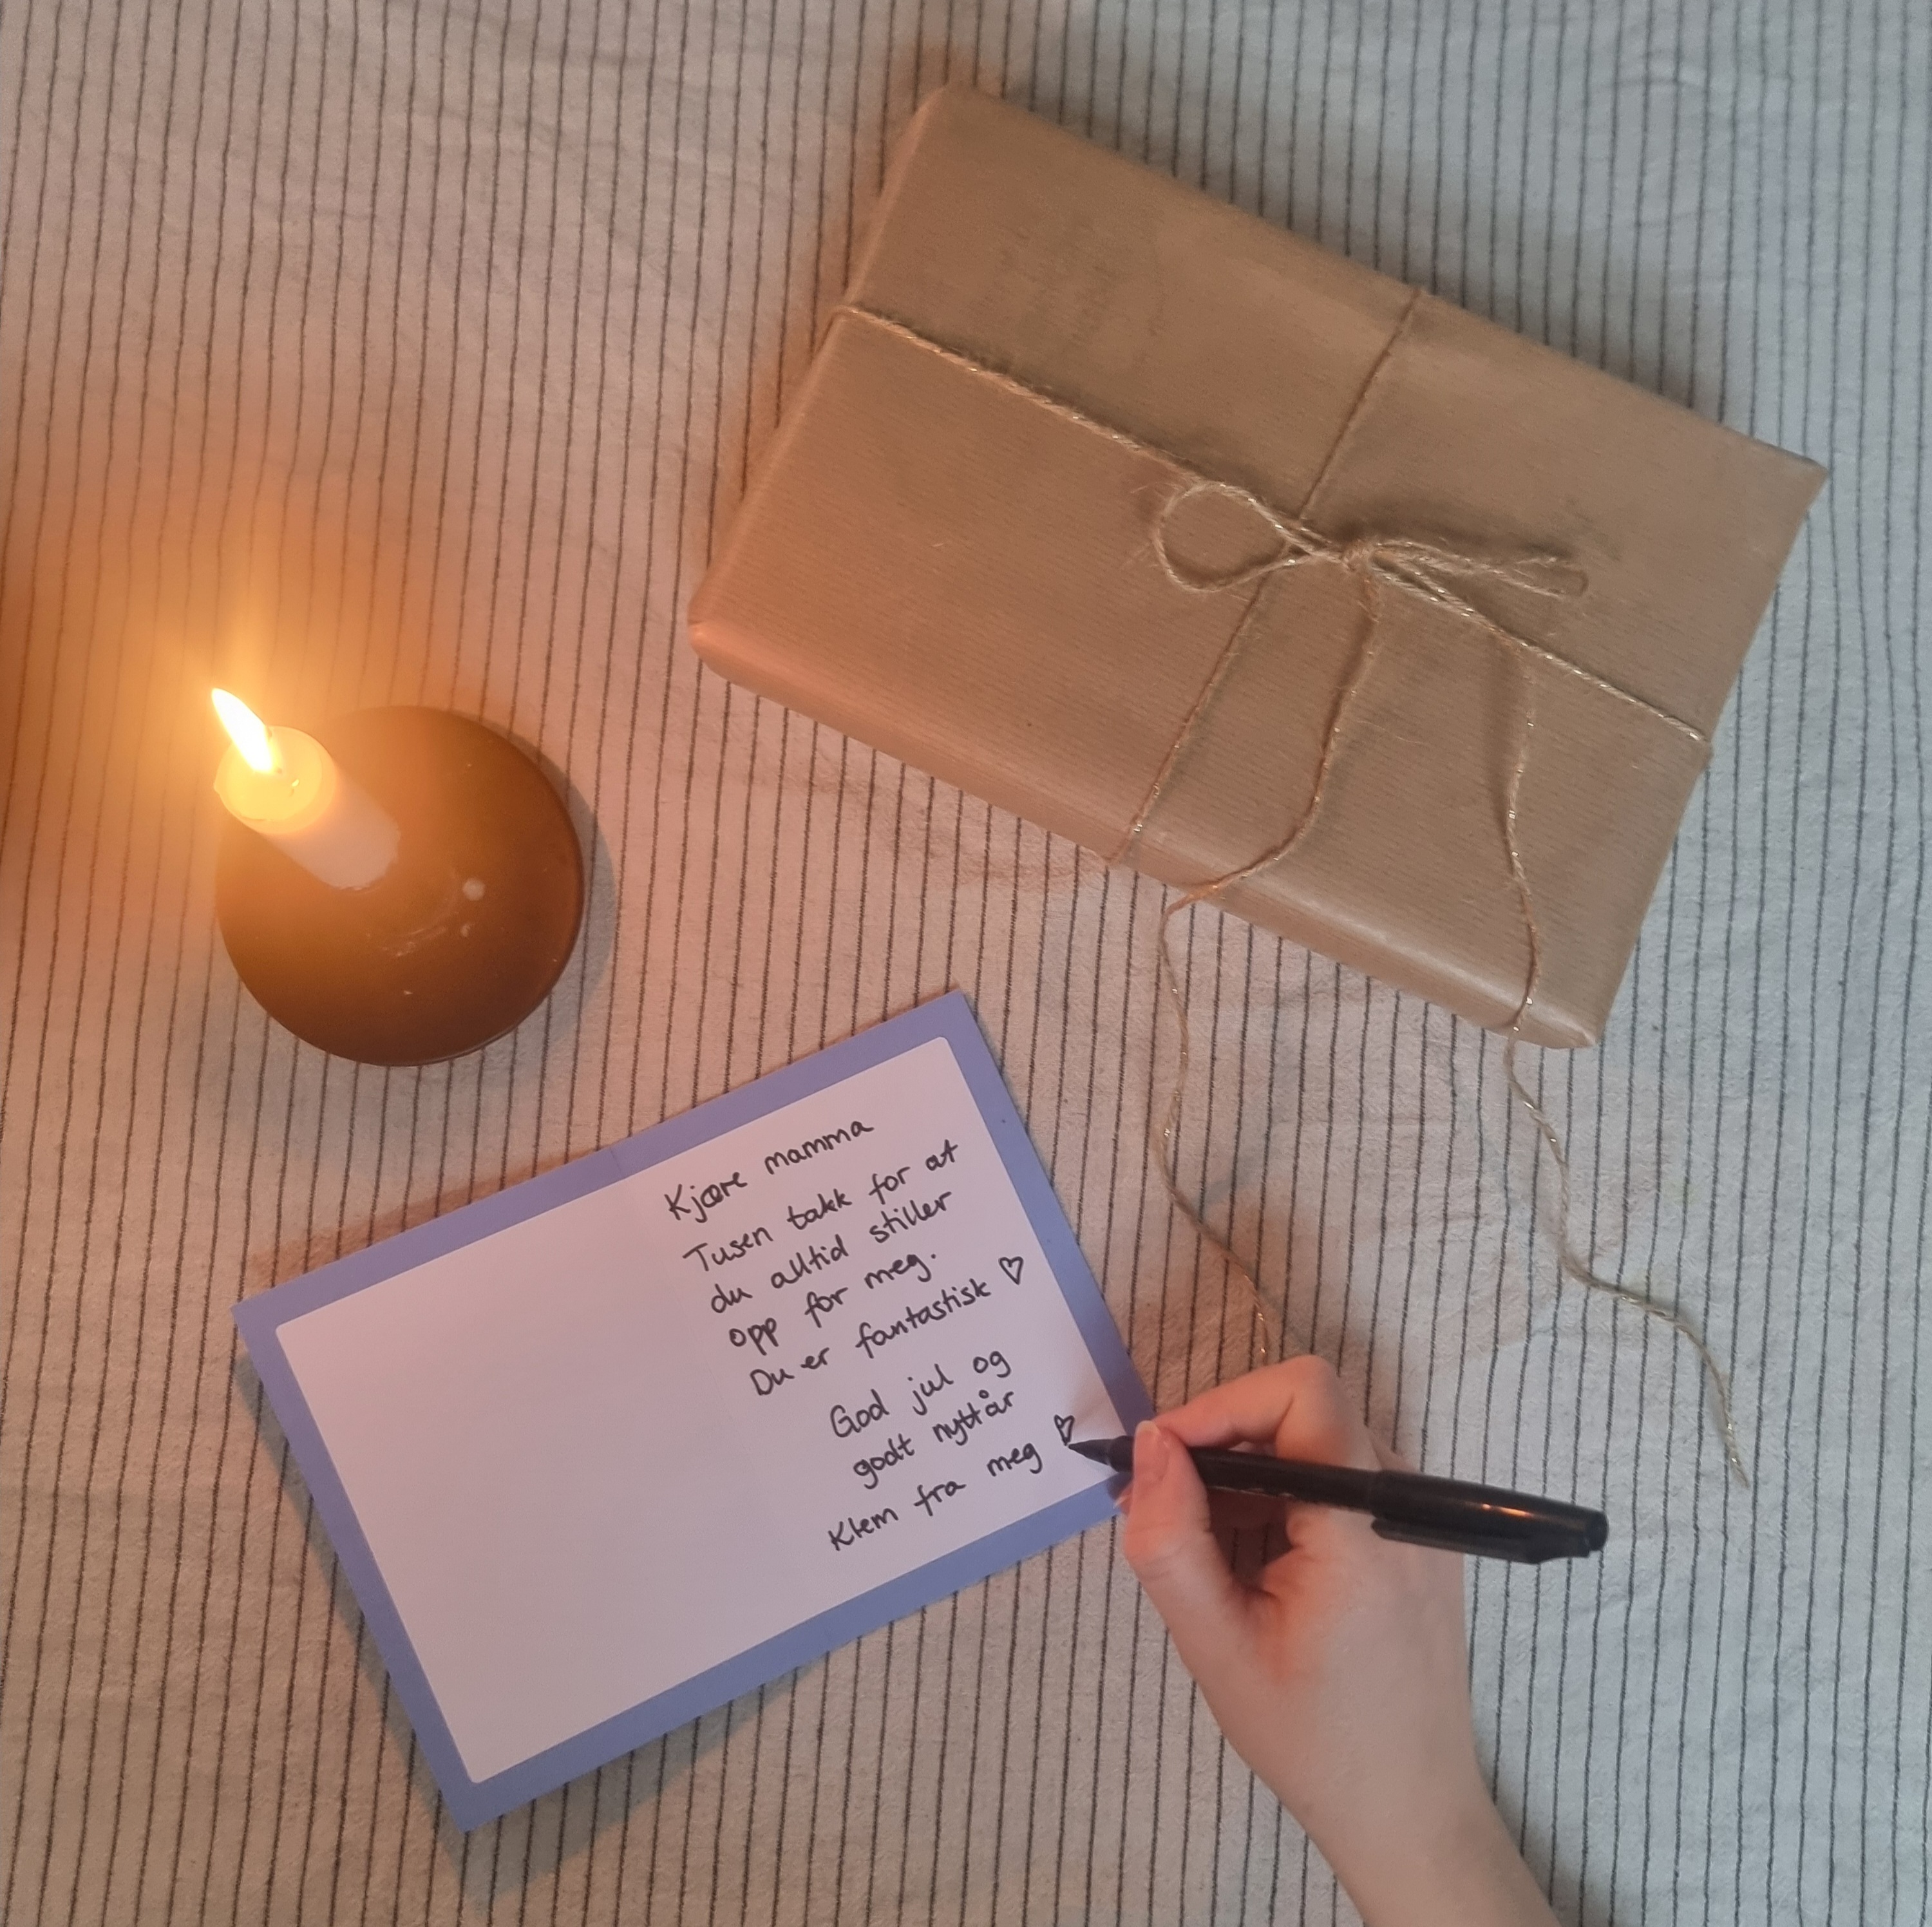 Kjære mamma
Tusen takk for at
du alltid stiller
opp for meg.
Du er fantastisk ♡
God jul og
godt nyttår
Klem fra meg ♡